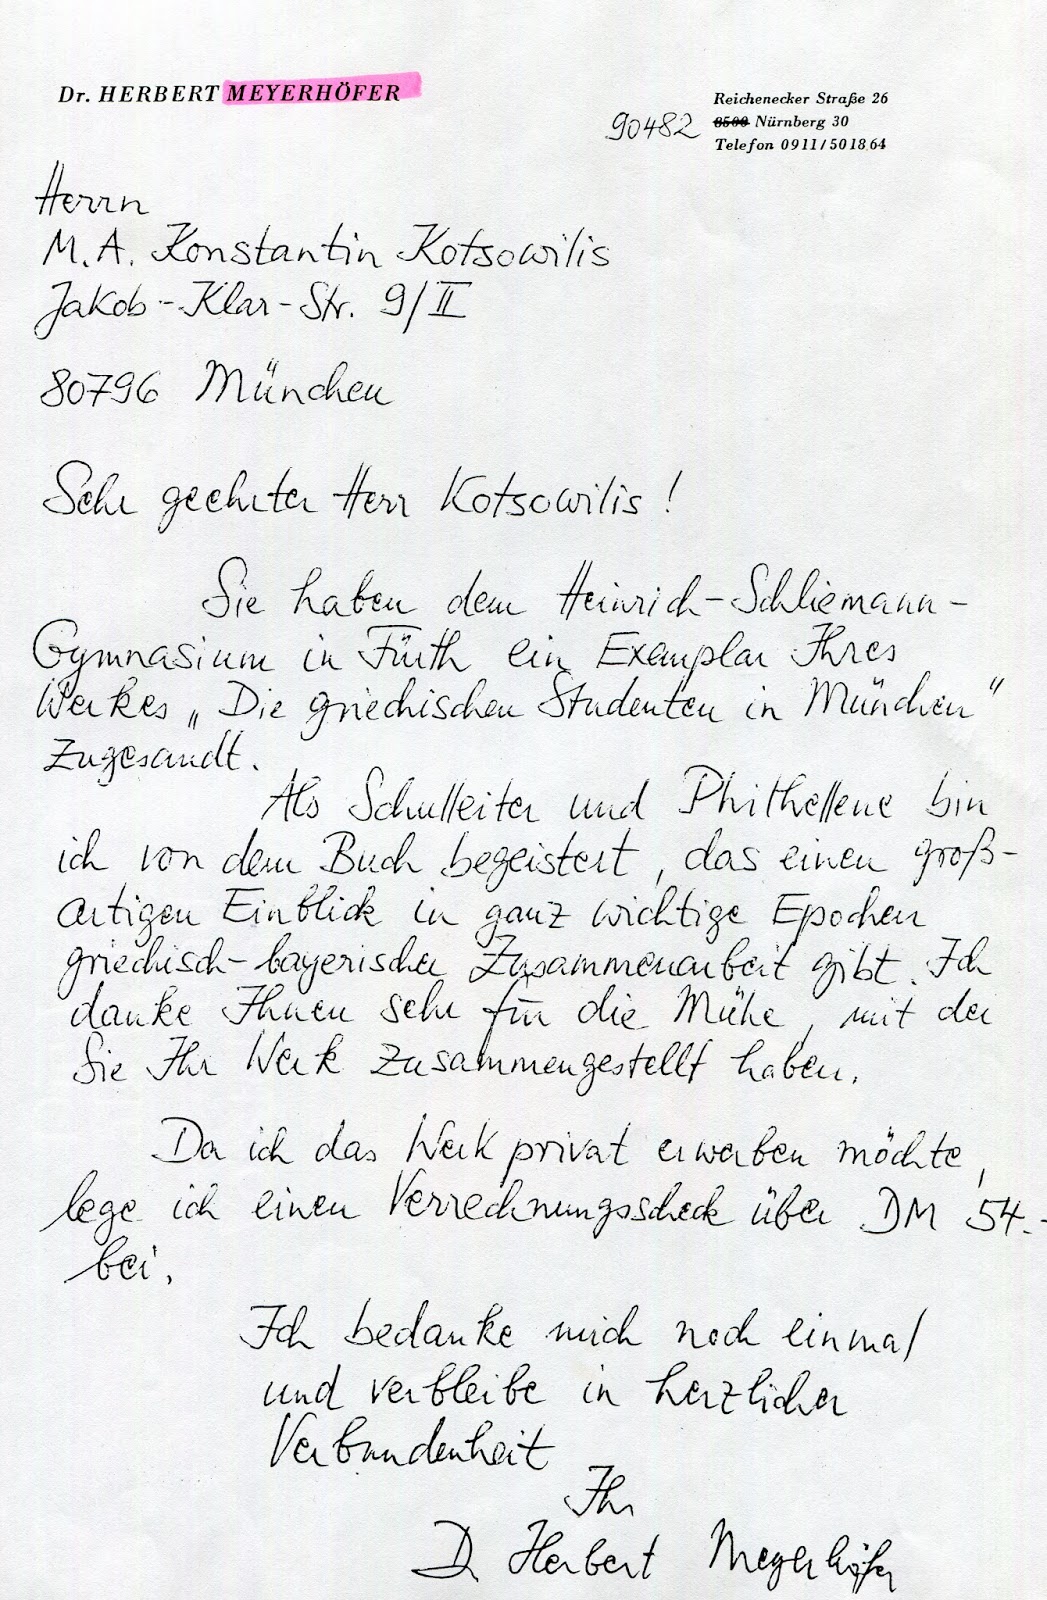 Dr. HERBERT MEYERHÖFER
Reichenecker Straße 26
90482 8500 Nürnberg 30
Telefon 0911/501864
Herrn
M.A. Konstantin Kotsowilis
Jakob-Klar-Str. 9/II
80796 München
Sehr geehrter Herr Kotsowilis!
Sie haben dem Heinrich-Schliemann-
Gymnasium in Fürth ein Exemplar Ihres
Werkes „Die griechischen Studenten in München"
zugesandt.
Als Schulleiter und Philhellene bin
ich von dem Buch begeistert, das einen groß-
artigen Einblick in ganz wichtige Epochen
griechisch-bayerischer Zusammenarbeit gibt. Ich
danke Ihnen sehr für die Mühe, mit der
Sie Ihr Werk zusammengestellt haben.
Da ich das Werk privat erwerben möchte,
lege ich einen Verrechnungsscheck über DM 54.-
bei.
Ich bedanke mich noch einmal
und verbleibe in herzlicher
Verbundenheit
Ihr
Dr. Herbert Meyerhöfer